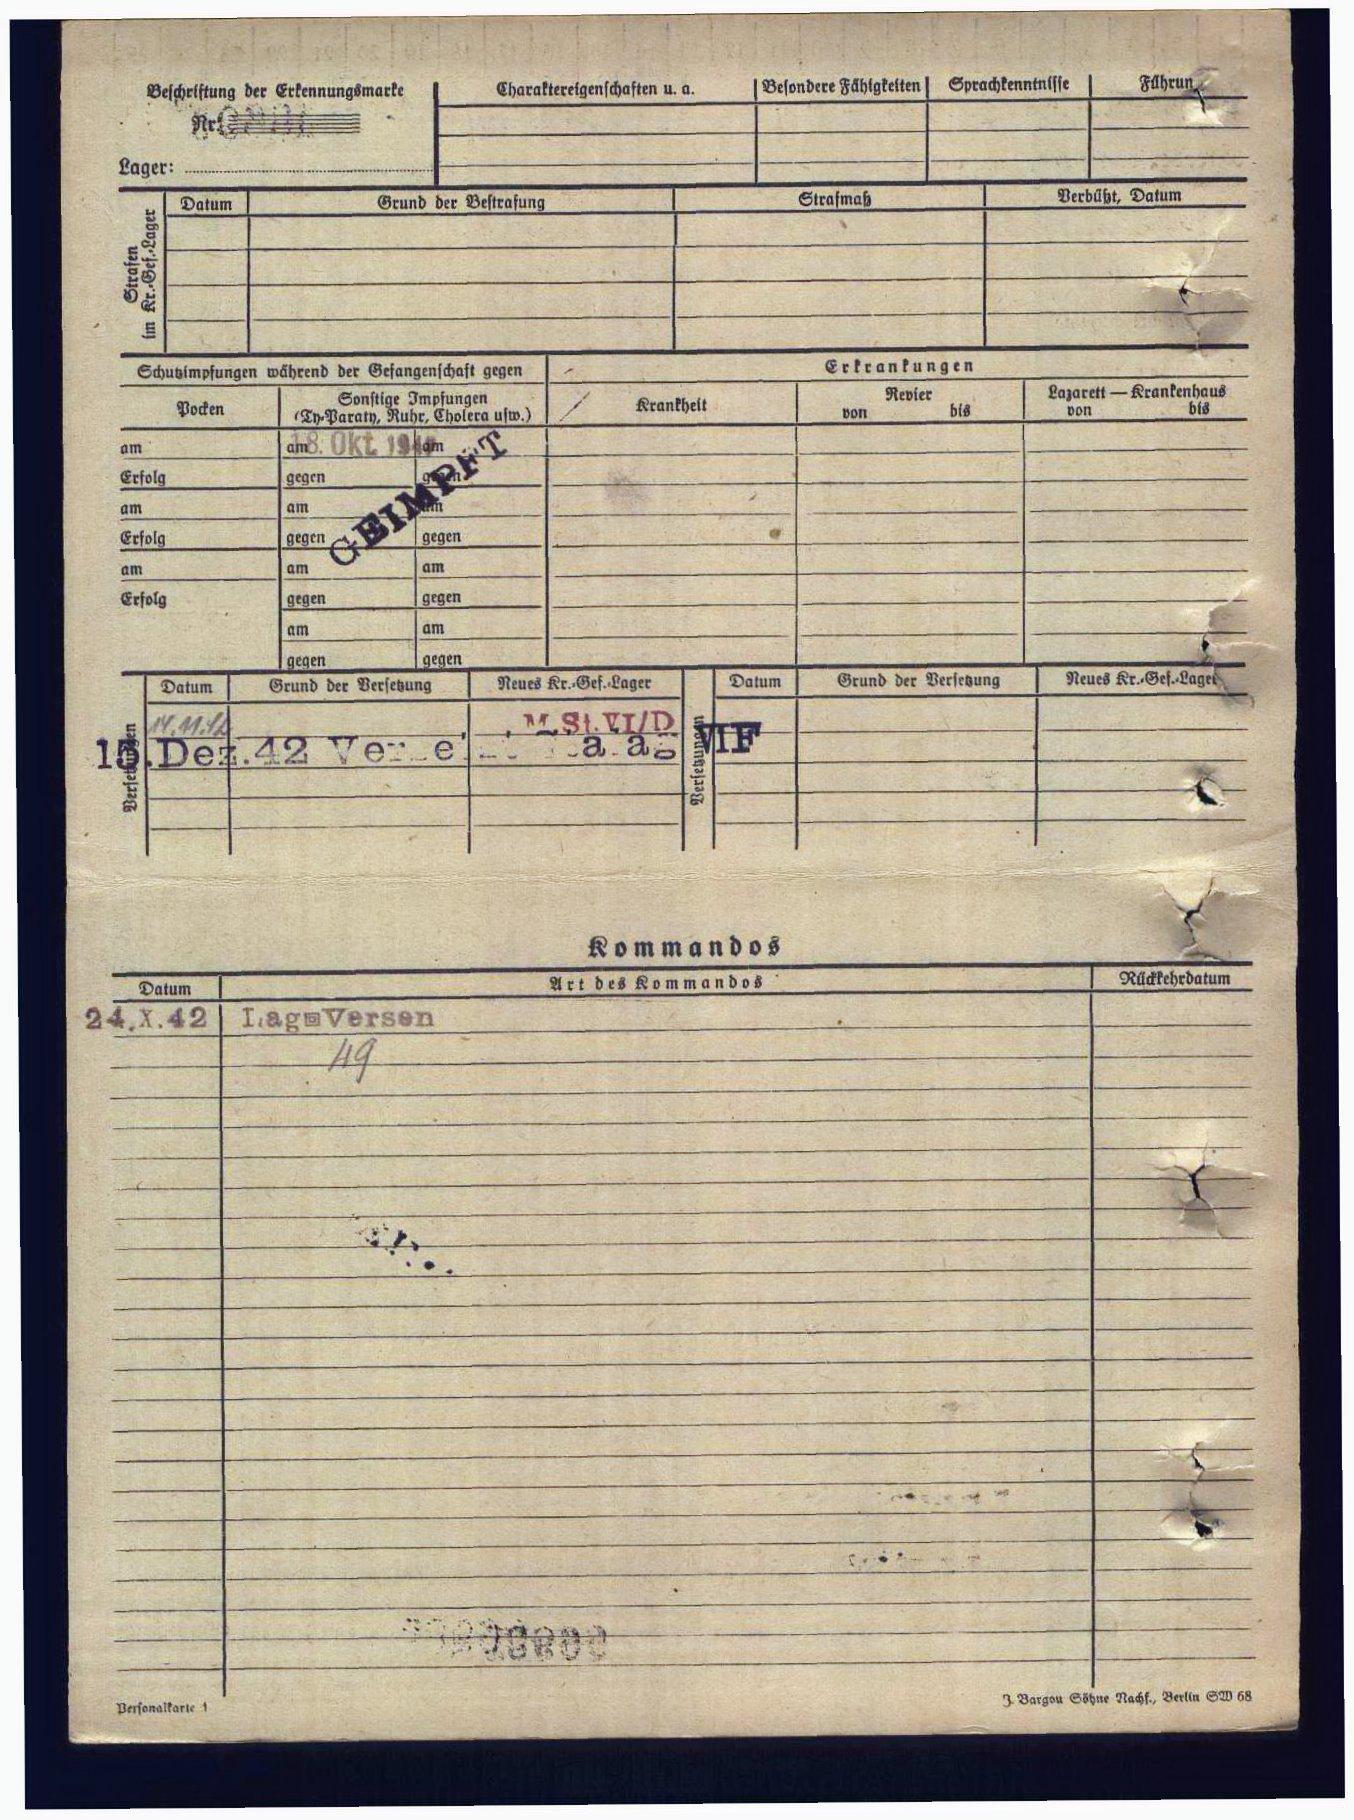 Beschriftung der Erkennungsmarke Charaktereigenschaften u. a. Besondere Fähigkeiten Sprachkenntnisse Führun
Nr.
Lager:
Strafen im Kr.-Gef.-Lager Datum Grund der Bestrafung Strafmaß Verbüßt, Datum
Schutzimpfungen während der Gefangenschaft gegen Erkrankungen
Pocken Sonstige Impfungen Krankheit Revier Lazarett — Krankenhaus
(Ty-Paraty, Ruhr, Cholera usw.) von bis von bis
am am 18. Okt. am
Erfolg gegen gegen
GEIMPFT
am am am
Erfolg gegen gegen
am am am
Erfolg gegen gegen
am am
gegen gegen
Versetzungen Datum Grund der Versetzung Neues Kr.-Gef.-Lager Versetzungen Datum Grund der Versetzung Neues Kr.-Gef.-Lager
14.11.42 M.St.VI/D
15.Dez.42 VIF
Kommandos
Datum Art des Kommandos Rückkehrdatum
24.X.42 Lag Versen
49
Personalkarte 1 J. Bargou Söhne Nachf., Berlin SW 68